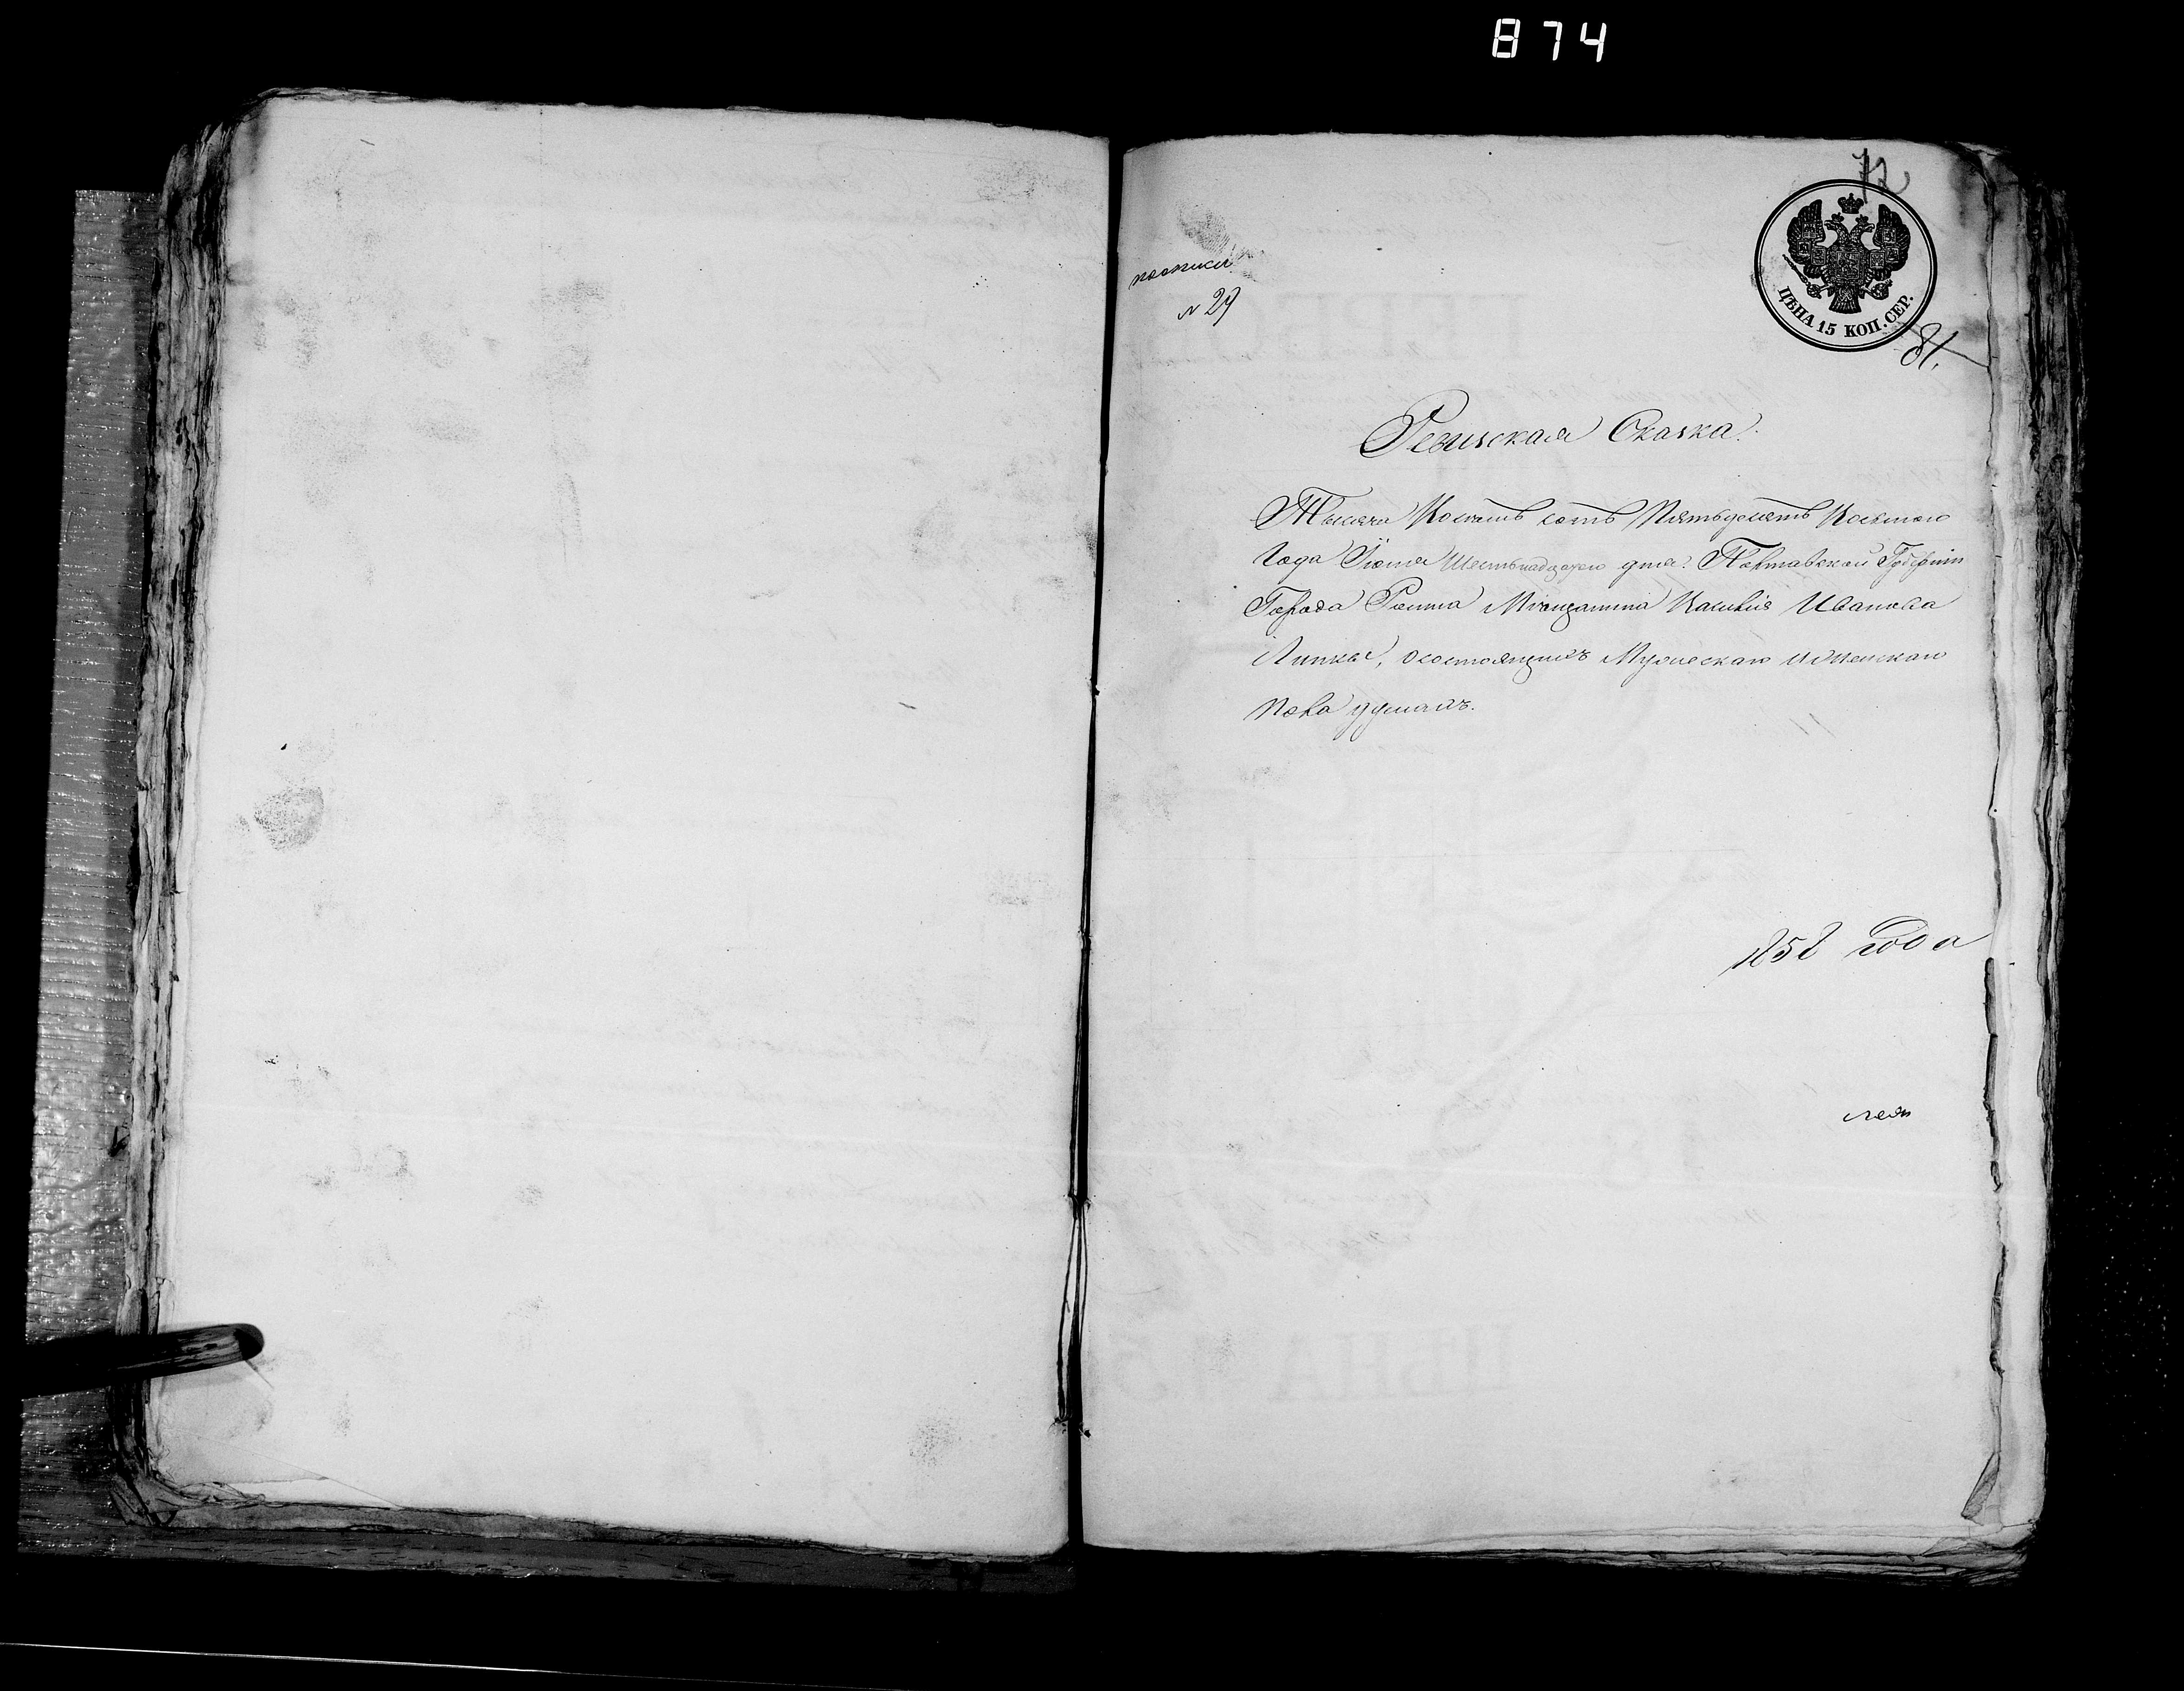 874
72
ЦѢНА 15 КОП. СЕР.
81.
№ 29
Ревизская Сказка.
Тысяча Восемь сотъ Пятьдесятъ Восьмого
Года Іюня Шестьнадцатаго дня. Полтавской Губерніи
Города Ромна Мѣщанина Василія Иванова
Липки, о состоящихъ Мужеска и Женска
Пола душахъ.
1858 года